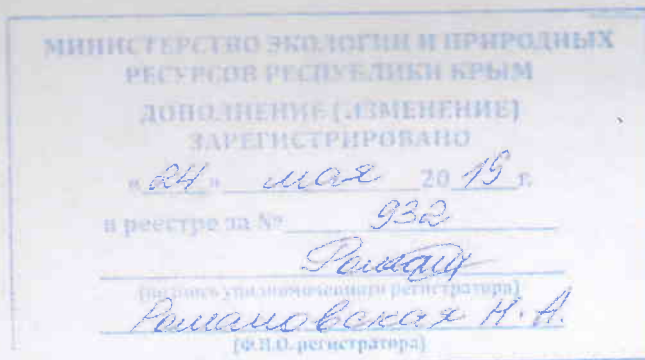 МИНИСТЕРСТВО ЭКОЛОГИИ И ПРИРОДНЫХ
РЕСУРСОВ РЕСПУБЛИКИ КРЫМ
ДОПОЛНЕНИЕ (ИЗМЕНЕНИЕ)
ЗАРЕГИСТРИРОВАНО
"24" мая 2019 г.
в реестре за № 932
(подпись уполномоченного регистратора)
Романовская Н. А.
(Ф.И.О. регистратора)